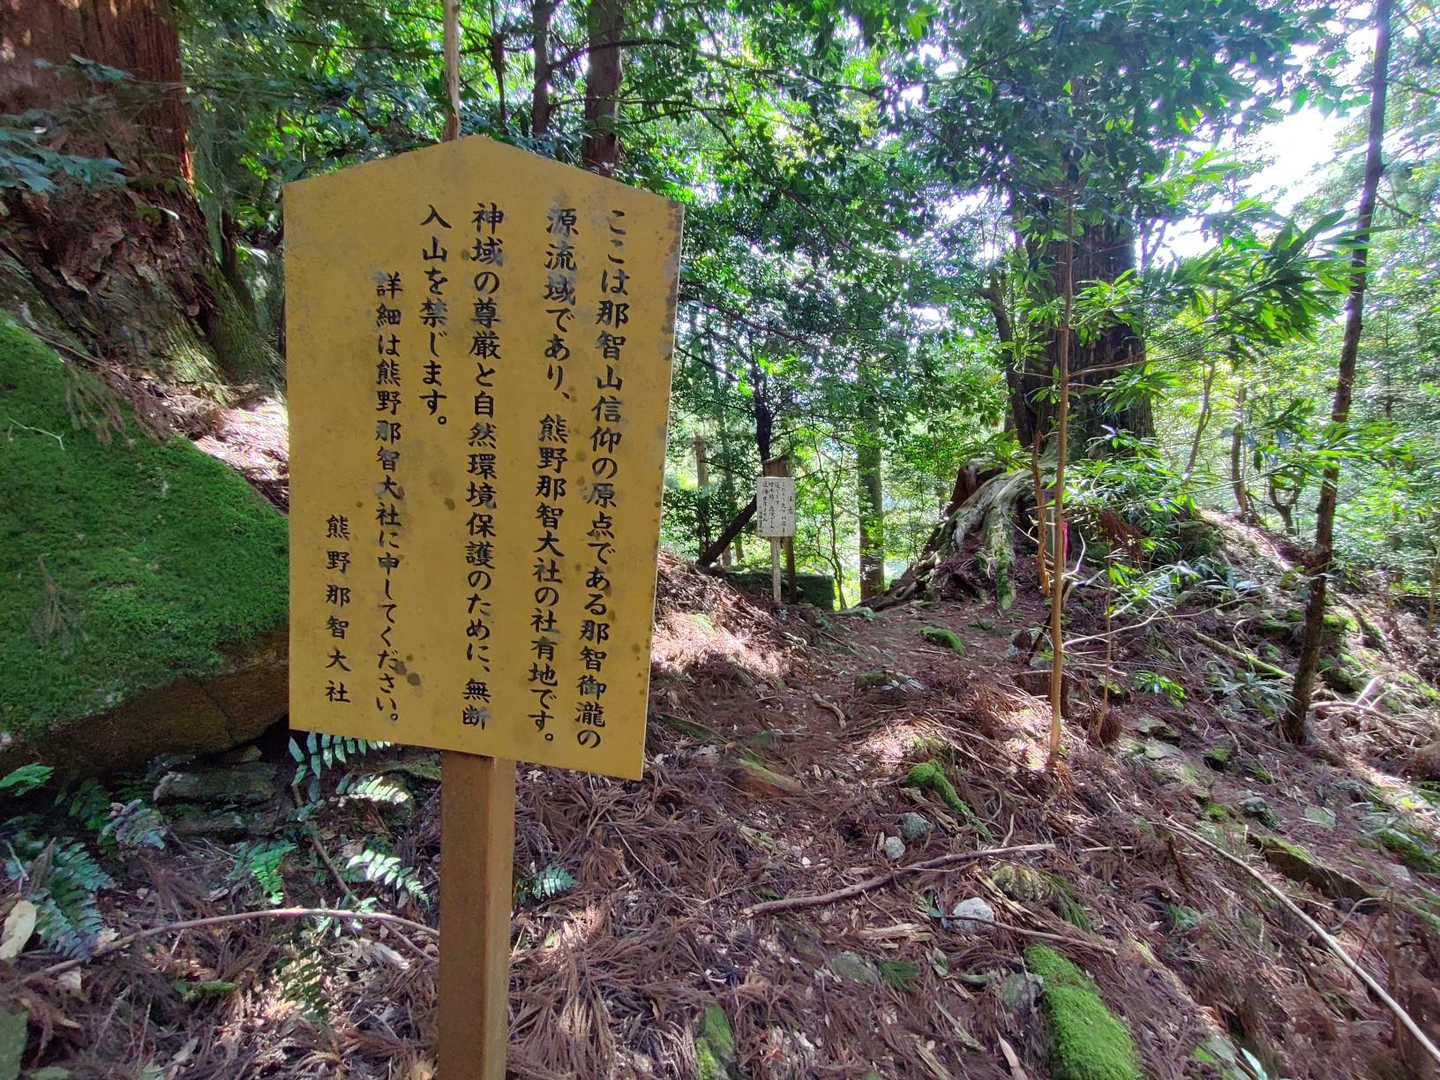 ここは那智山信仰の原点である那智御瀧の
源流域であり、熊野那智大社の社有地です。
神域の尊厳と自然環境保護のために、無断
入山を禁じます。
詳細は熊野那智大社に申してください。
熊野那智大社